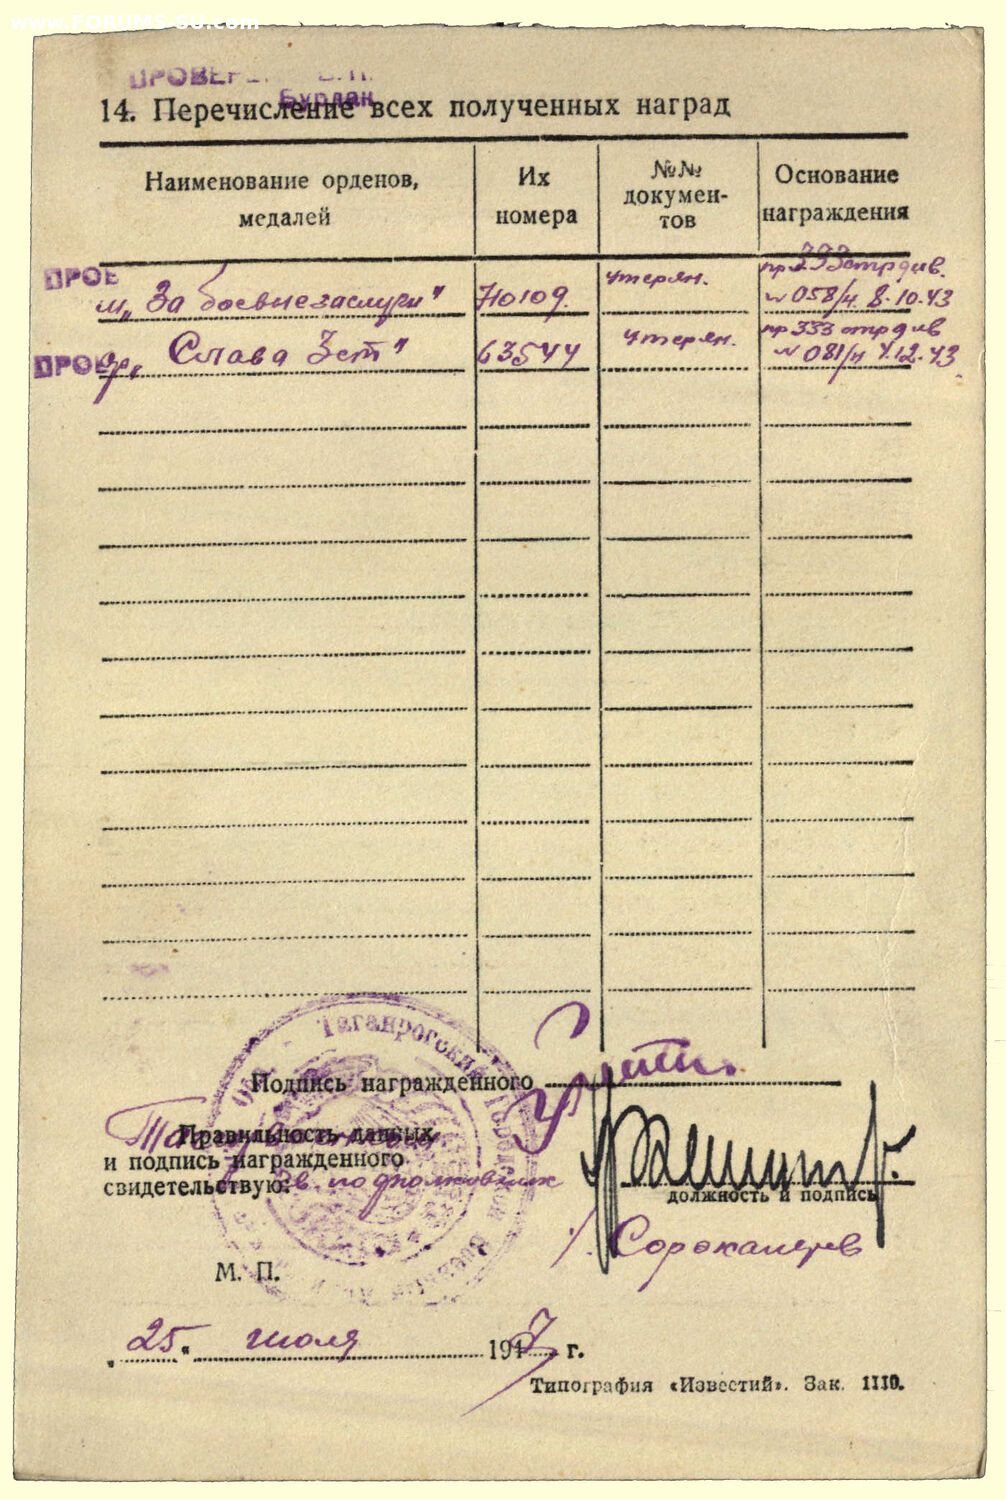 www.FORUMS-SU.com
Бурлак
14. Перечисление всех полученных наград
Наименование орденов, медалей
Их номера
№№ докумен-тов
Основание награждения
ПРОВЕ
м„ За боевые заслуги" 710109. утерян. пр 333 стр див.
№ 058/н 8.10.43
ор„ Слава 3 ст" 63544 утерян. пр 333 стр див
№ 081/н 7.12.43
Подпись награжденного
Правильность данных
и подпись награжденного
свидетельствую:
подполковник
должность и подпись
/. Сорокалетов
М. П.
„25" июля 1947 г.
Типография «Известий». Зак. 1110.
Таганрогский Городской Военный